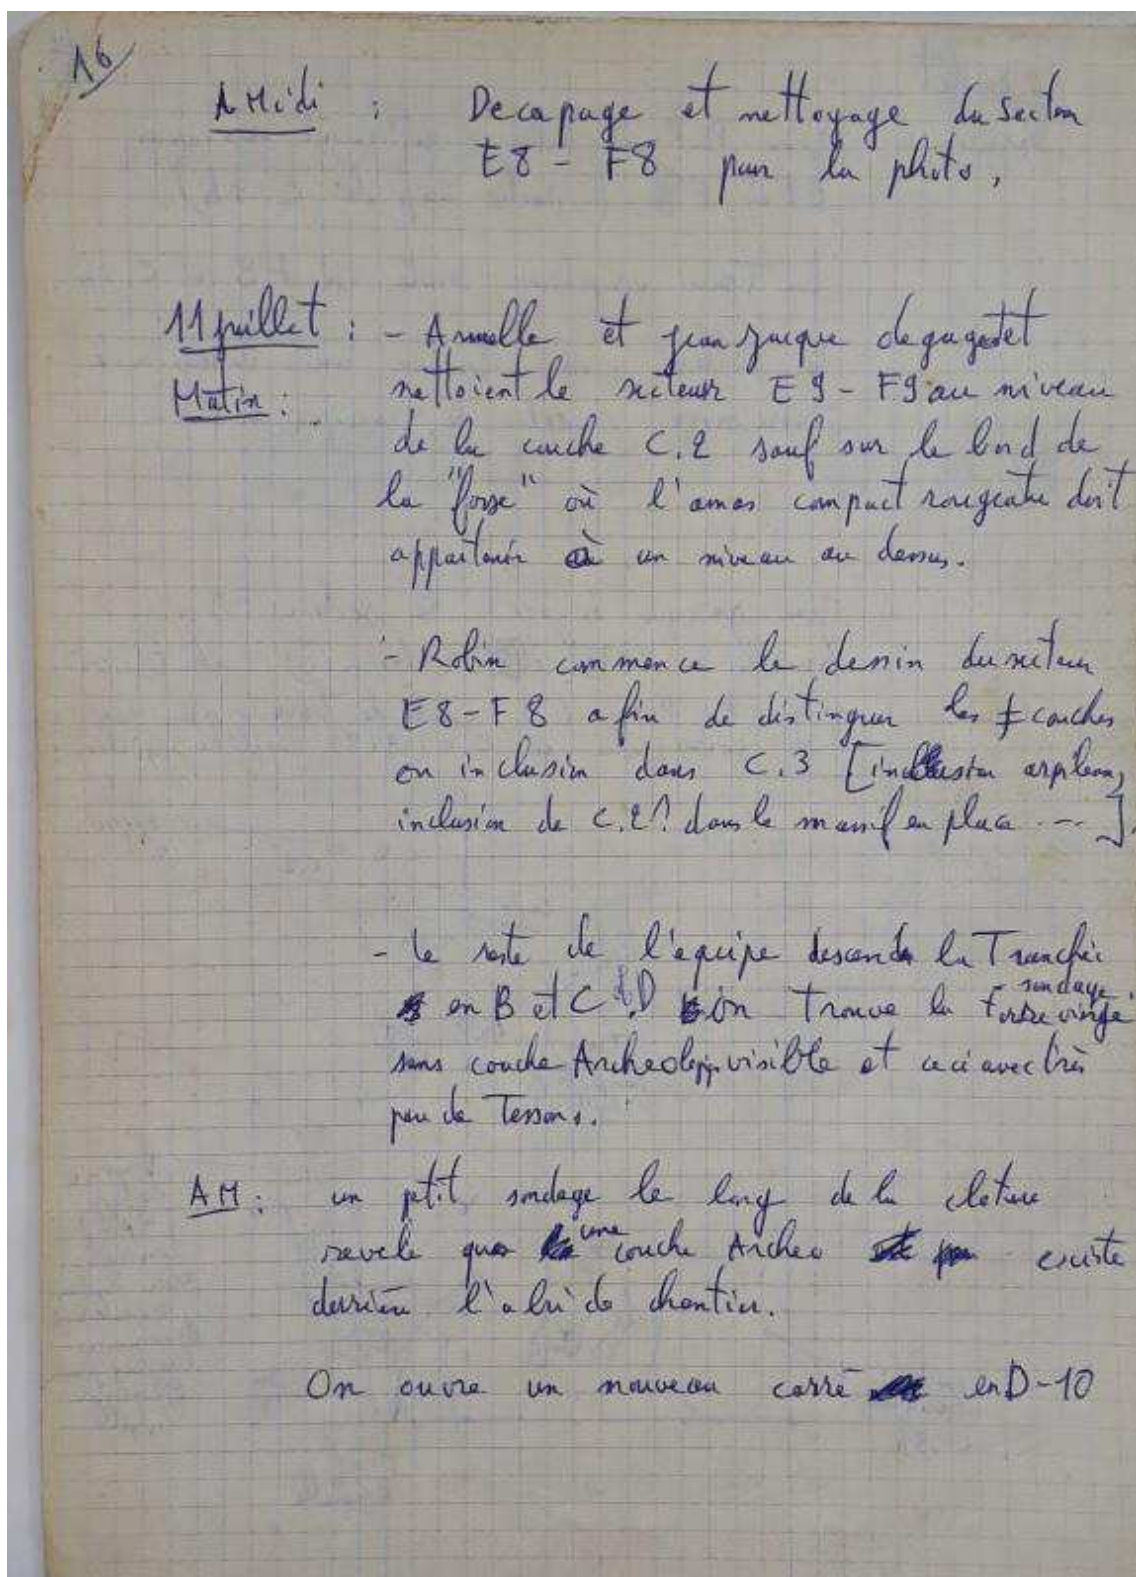 16
A Midi : Decapage et nettoyage du secteur
E8 - F8 pour la photo,
11 juillet : - Armelle et jean jacque degagent et
Matin : nettoient le secteur E9 - F9 au niveau
de la couche C.2 sauf sur le bord de
la "fosse" où l'amas compact rougeatre doit
appartenir à un niveau au dessus.
- Robin commence le dessin du secteur
E8-F8 afin de distinguer les ≠ couches
ou inclusion dans C.3 [inclusion
inclusion de C.2? dans le massif en place --- ].
- le reste de l'equipe descend la Tranchée
en B et C et D on Trouve la sondage
sans couche Archeologiq visible et ceci avec très
peu de Tessons.
AM : un petit sondage le long de la cloture
revele que une couche Archeo existe
derrière l'abri de chantier.
On ouvre un nouveau carré en D-10